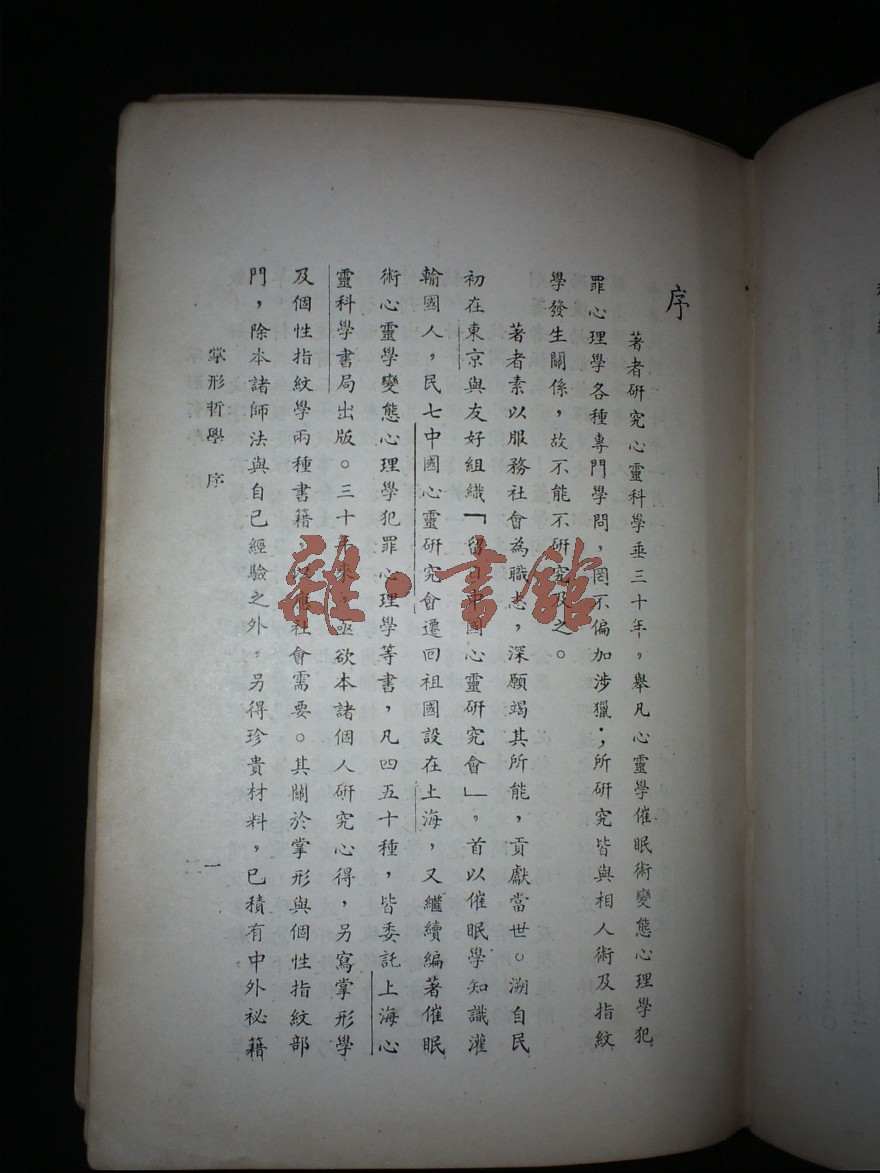 序
著者研究心靈科學垂三十年，舉凡心靈學催眠術變態心理學犯
罪心理學各種專門學問，罔不偏加涉獵；所研究皆與相人術及指紋
學發生關係，故不能不研究及之。
著者素以服務社會為職志，深願竭其所能，貢獻當世。溯自民
初在東京與友好組織「留日中國心靈研究會」，首以催眠學知識灌
輸國人，民七中國心靈研究會遷回祖國設在上海，又繼續編著催眠
術心靈學變態心理學犯罪心理學等書，凡四五十種，皆委託上海心
靈科學書局出版。三十年來，亟欲本諸個人研究心得，另寫掌形學
及個性指紋學兩種書籍，以應社會需要。其關於掌形與個性指紋部
門，除本諸師法與自己經驗之外，另得珍貴材料，已積有中外祕籍
掌形哲學 序
一
雜·書館